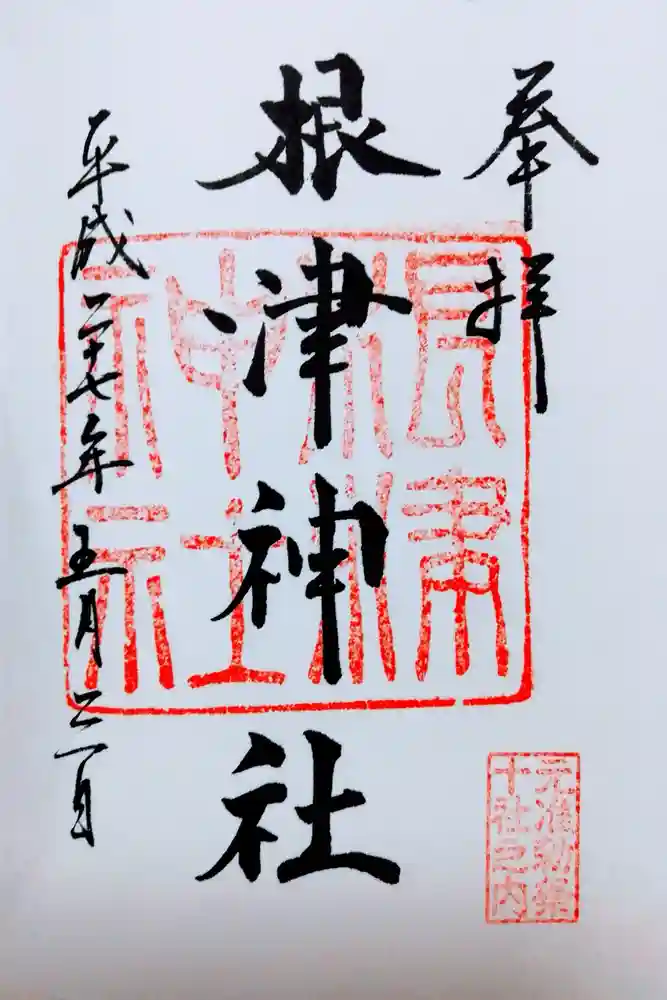 奉拝
根津神社
平成二十七年 五月二一日
根津
神社
元准勅祭
十社之内